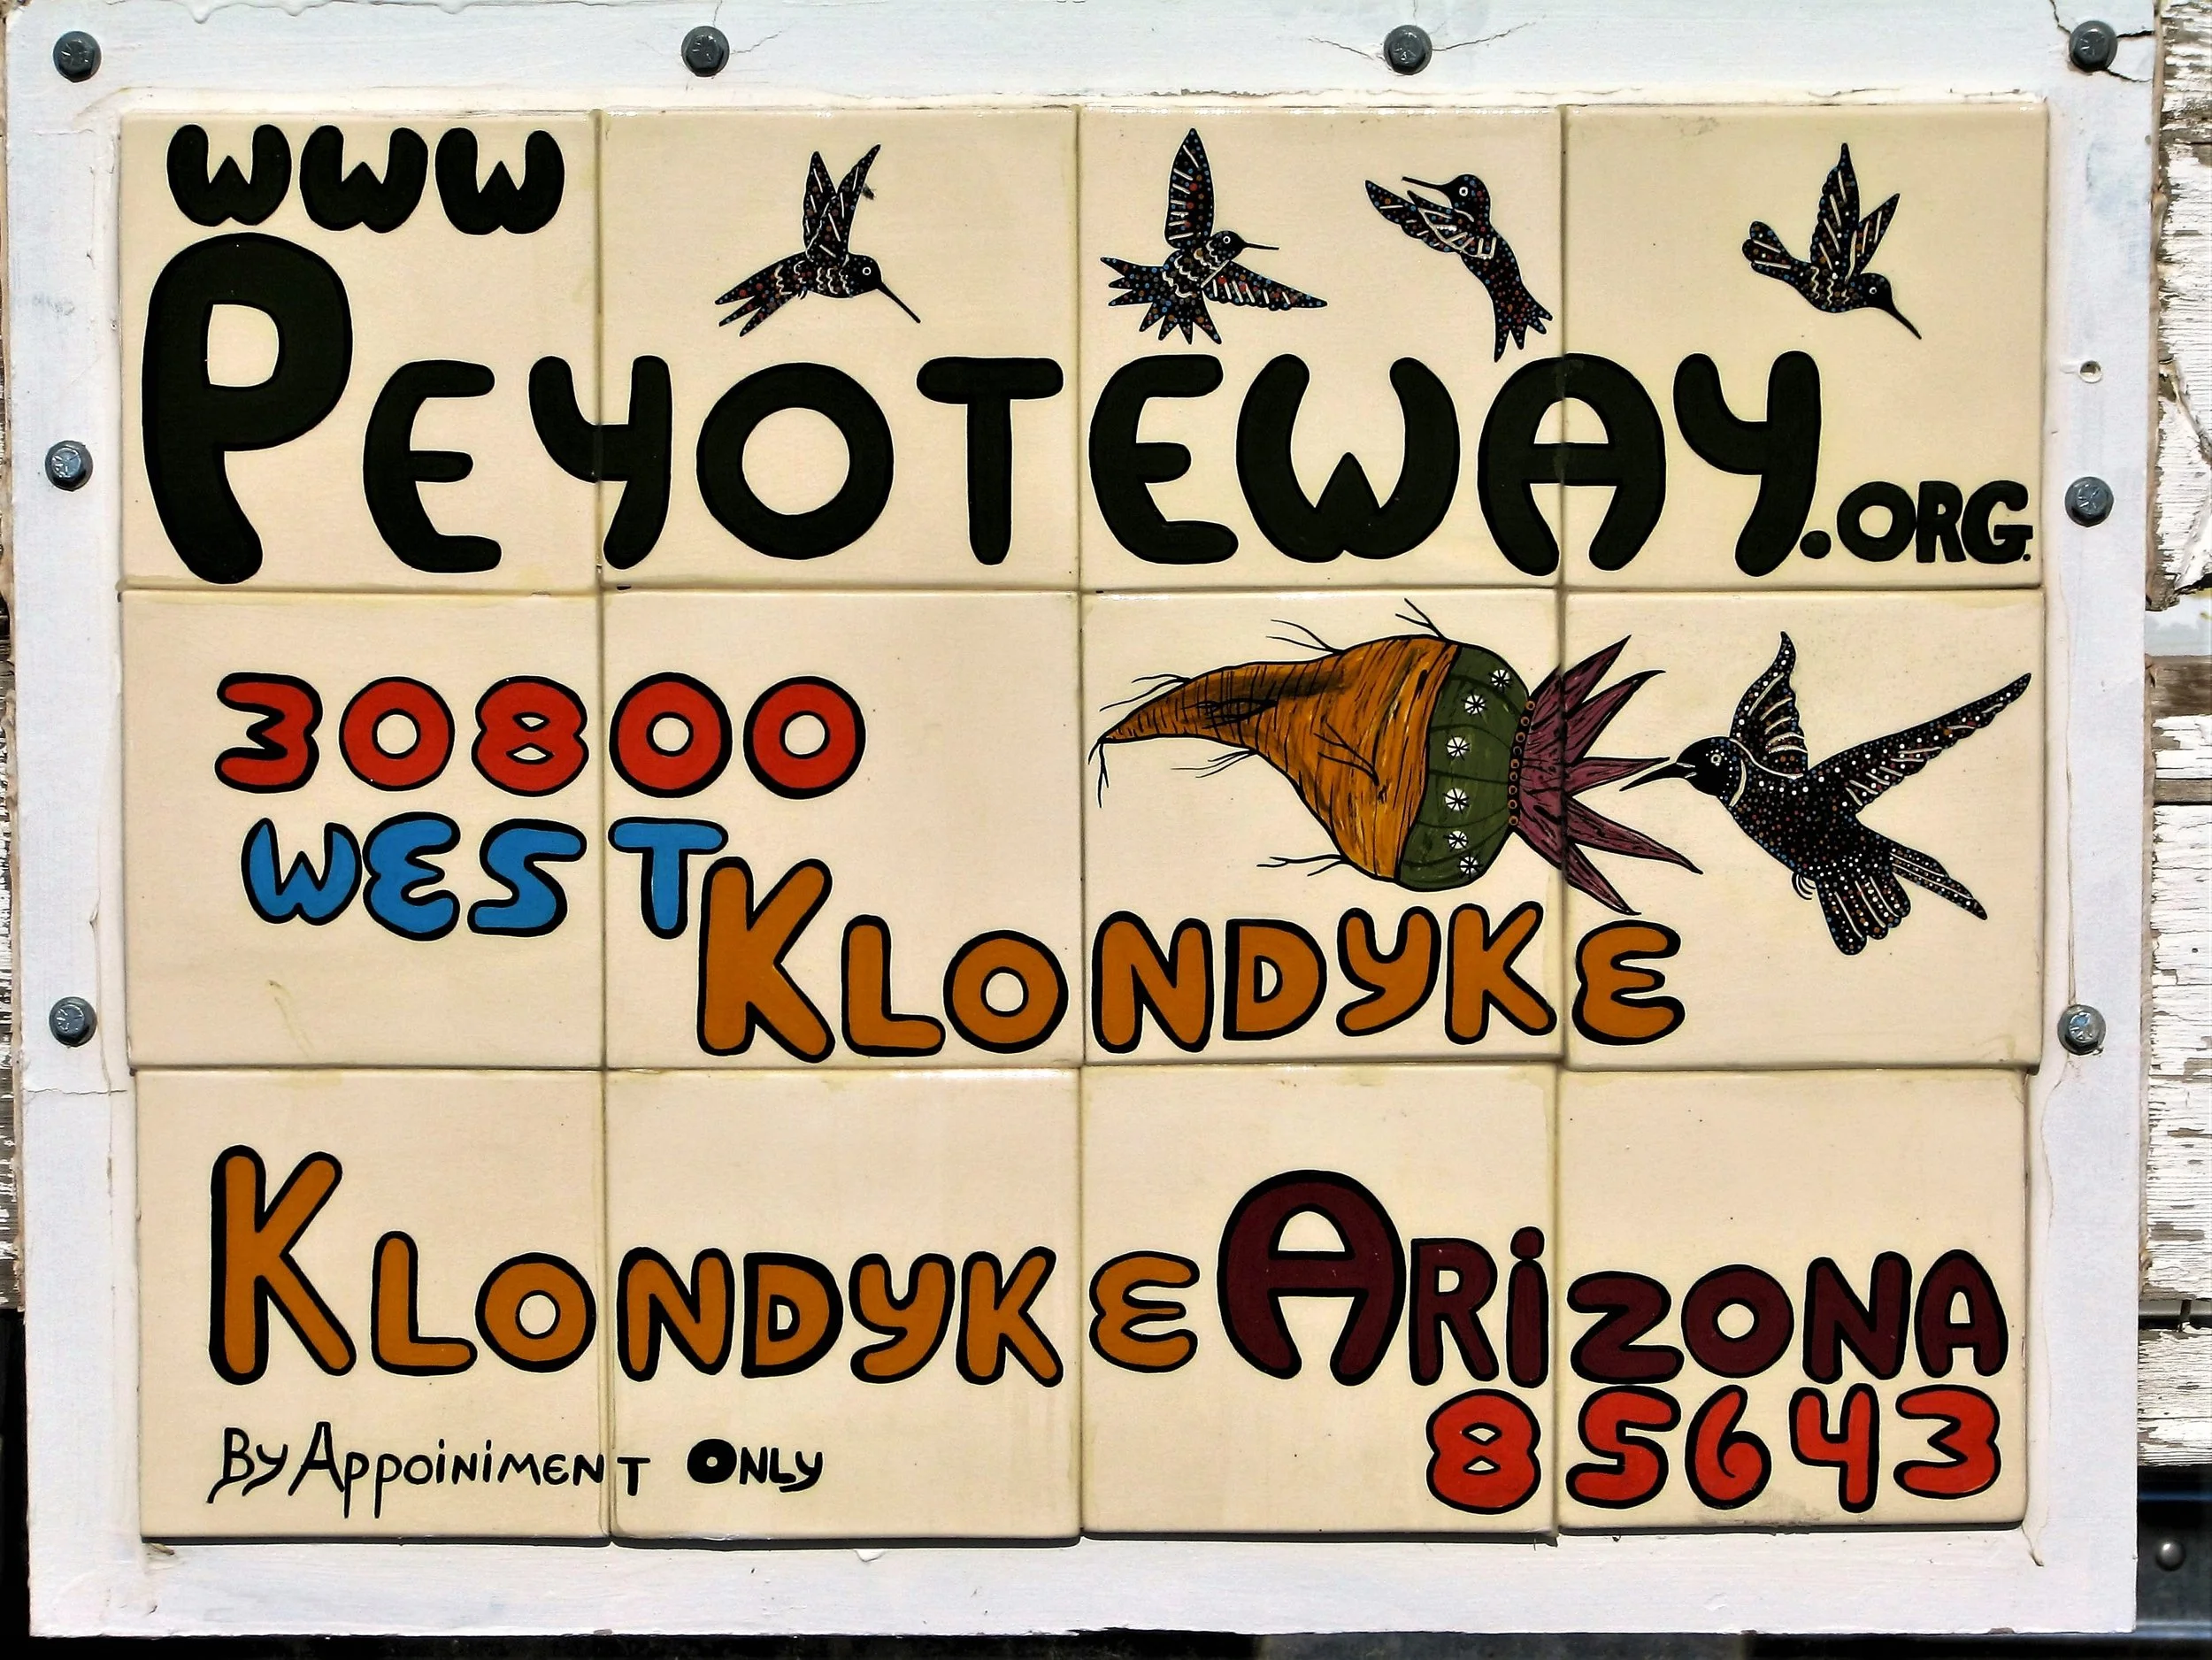 www
PEYOTEWAY.ORG.
30800
WEST
KLONDYKE
KLONDYKE ARiZONA
85643
By AppoiniMENT ONLY